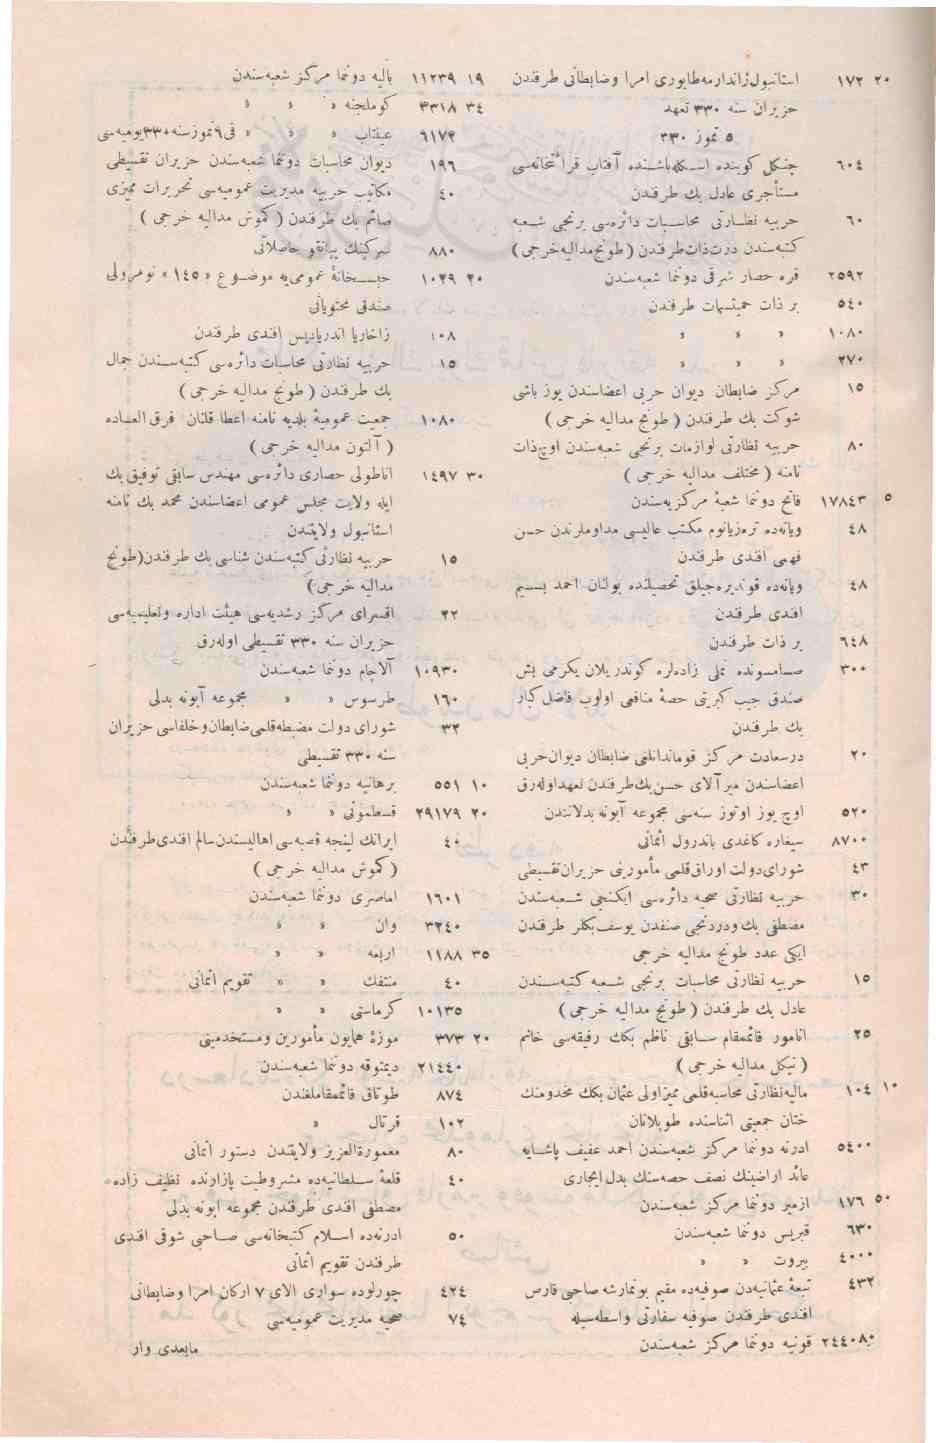 ٢٠ ١٧٢ استانبول ژاندارمه طابوری امرا وضابطانی طرفندن
حزیران سنه ٣٣٠ تعهد
٥ تموز ٣٣٠
٦٠٤ چنگل کوینده اسکله باشنده آفتاب قرائتخانه سی
مستأجری عادل بك طرفندن
٦٠ حربیه نظارتی محاسبات دائره سی برنجی شعبه
کتبه سندن درت ذات طرفندن (طونج مدالیه خرجی)
٢٥٩٢ قره حصار شرقی دوننما شعبه سندن
٥٤٠ بر ذات حمیتسمات طرفندن
١٠٨٠ » » »
٢٧٠ » » »
١٥ مرکز ضابطان دیوان حربی اعضاسندن یوز باشی
شوکت بك طرفندن (طونج مدالیه خرجی)
٨٠ حربیه نظارتی لوازمات برنجی شعبه سندن اوچ ذات
نامنه (مختلف مدالیه خرجی)
٥ ١٧٨٤٣ فاتح دوننما شعبهٔ مرکزیه سندن
٤٨ ویانه ده تره زیانوم مکتب عالیسی مداوملرندن حسن
فهمی افندی طرفندن
٤٨ ویانه ده قوندیره جیلق تحصیلنده بولنان احمد بسیم
افندی طرفندن
٦٤٨ بر ذات طرفندن
٣٠٠ صامسونده نملی زاده لره کوندریلان یکرمی بش
صندق جیب کبریتی حصهٔ منافعی اولوب فاضل کبار
بك طرفندن
٢٠ درسعادت مرکز قوماندانلغی ضابطان دیوان حربی
اعضاسندن میرآلای حسن بك طرفندن تعهد اوله رق
٥٢٠ اوچ یوز اوتوز سنه سی مجموعه آبونه بدلاتندن
٨٧٠٠ سیغاره کاغدی باندرول اثمانی
٤٣ شورای دولت اوراق قلمی مأمورینی حزیران تقسیطی
٣٠ حربیه نظارتی صحیه دائره سی ایکنجی شعبه سندن
مصطفی بك ودردنجی صنفدن یوسف بکلر طرفندن
ایکی عدد طونج مدالیه خرجی
١٥ حربیه نظارتی محاسبات برنجی شعبه کتبه سندن
عادل بك طرفندن (طونج مدالیه خرجی)
٢٥ انامور قائممقام سابقی ناظم بکك رفیقه سی خانم
(نیکل مدالیه خرجی)
١٠ ١٠٤ مالیه نظارتی محاسبه قلمی ممیز اولی عثمان بکك مخدومنك
ختان جمعیتی اثناسنده طوپلانان
٥٤٠٠ ادرنه دوننما مرکز شعبه سندن احمد عفیف پاشایه
عائد اراضینك نصف حصه سنك بدل ایجاری
٥٠ ١٧٦ ازمیر دوننما مرکز شعبه سندن
٦٣٠ قبریس دوننما شعبه سندن
٤٠٠٠ بیروت » »
٤٣٢ تبعهٔ عثمانیه دن صوفیه ده مقیم بونمارشه صاحبی فارس
افندی طرفندن صوفیه سفارتی واسطه سیله
٢٤٤٠٨٠ قونیه دوننما مرکز شعبه سندن
١٩ ١١٢٣٩ بالیه دوننما مرکز شعبه سندن
٣٤ ٣٣١٨ کوملجنه » » »
٦١٧٢ عینتاب » » » فی ٩ تموز سنه ٣٣٠ یومیه سی
١٩٦ دیوان محاسبات دوننما شعبه سندن حزیران تقسیطی
٤٠ مکاتب حربیه مدیریت عمومیه سی تحریرات ممیزی
صائم بك طرفندن (کموش مدالیه خرجی)
٨٨٠ سرکینك پیانقو حاصلاتی
٢٠ ١٠٢٩ حبسخانهٔ عمومی یه موضوع «١٤٥» نومرولی
صندقی محتویاتی
١٠٨ زاخاریا اندریادیس افندی طرفندن
١٥ حربیه نظارتی محاسبات دائره سی کتبه سندن جمال
بك طرفندن (طونج مدالیه خرجی)
١٠٨٠ جمعیت عمومیهٔ بلدیه نامنه اعطا قلنان فوق العاده
(آلتون مدالیه خرجی)
٣٠ ١٤٩٧ اناطولی حصاری دائره سی مهندس سابقی توفیق بك
ایله ولایت مجلس عمومی اعضاسندن محمد بك نامنه
استانبول ولایتندن
١٥ حربیه نظارتی کتبه سندن شناسی بك طرفندن (طونج
مدالیه خرجی)
٢٢ اقسرای مرکز رشدیه سی هیئت اداره وتعلیمیه سی
حزیران سنه ٣٣٠ تقسیطی اوله رق
١٠٩٣٠ آلاچام دوننما شعبه سندن
١٦٠ طرسوس » » مجموعه آبونه بدلی
٣٢ شورای دولت مضبطه قلمی ضابطان وخلفاسی حزیران
سنه ٣٣٠ تقسیطی
١٠ ٥٥١ برهانیه دوننما شعبه سندن
٢٠ ٢٩١٧٩ قسطمونی » »
٤٠ ایرانك لینجه قصبه سی اهالیسندن سالم افندی طرفندن
(کموش مدالیه خرجی)
١٦٠١ اماصری دوننما شعبه سندن
٣٢٤٠ وان » »
٣٥ ١١٨٨ اربعه » »
٤٠ منتفك » » تقویم اثمانی
١٠١٣٥ کرماستی » »
٢٠ ٣٧٣ موزهٔ همایون مأمورین ومستخدمینی
٢١٤٤٠ دیمتوقه دوننما شعبه سندن
٨٧٤ طوتاق قائممقاملغندن
١٠٢ قرتال »
٨٠ معمورة العزیز ولایتندن دستور اثمانی
٤٠ قلعهٔ سلطانیه ده مشروطیت پازارنده نظیف زاده
مصطفی افندی طرفندن مجموعه آبونه بدلی
٥٠ ادرنه ده اسلام کتبخانه سی صاحبی شوقی افندی
طرفندن تقویم اثمانی
٤٢٤ چورلوده سواری آلای ٧ ارکان امرا وضابطانی
٧٤ صحیه مدیریت عمومیه سی
مابعدی وار